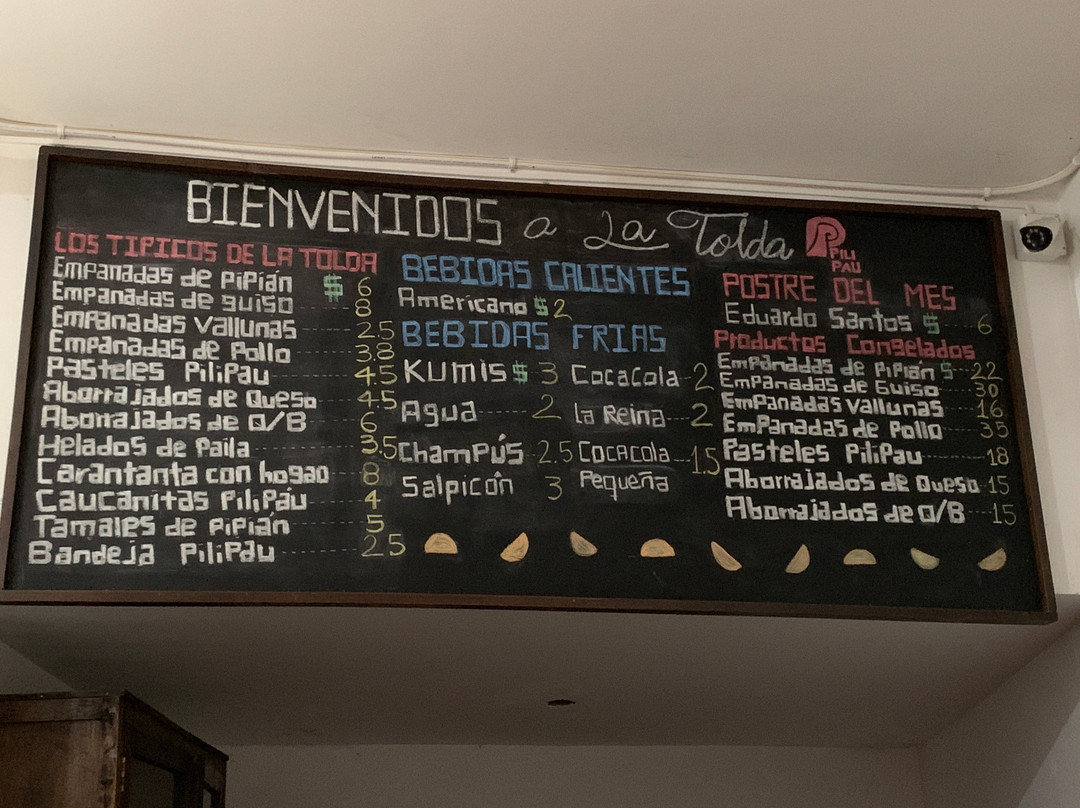 BIENVENIDOS a La Tolda
PILI
PAU
LOS TIPICOS DE LA TOLDA
Empanadas de PiPián $ 6
Empanadas de guiso 8
Empanadas Vallunas 2.5
Empanadas de Pollo 3.8
Pasteles PiliPau 4.5
Aborrajados de Queso 4.5
Aborrajados de O/B 6
Helados de Paila 3.5
Carantanta con hogao 8
Caucanitas PiliPáu 4
Tamales de PiPián 5
Bandeja PiliPau 25
BEBIDAS CALIENTES
Americano $ 2
BEBIDAS FRIAS
Kumis $ 3
Agua 2
ChamPús 2.5
Salpicón 3
CocaCola 2
la Reina 2
COCACOLA 1.5
Pequeña
POSTRE DEL MES
Eduardo Santos $ 6
Productos Congelados
Empanadas de PiPián $ 22
Empanadas de Guiso 30
EmPanadas Vallunas 16
EmPanadas de Pollo 35
Pasteles PiliPau 18
Aborrajados de Queso 15
Aborrajados de O/B 15